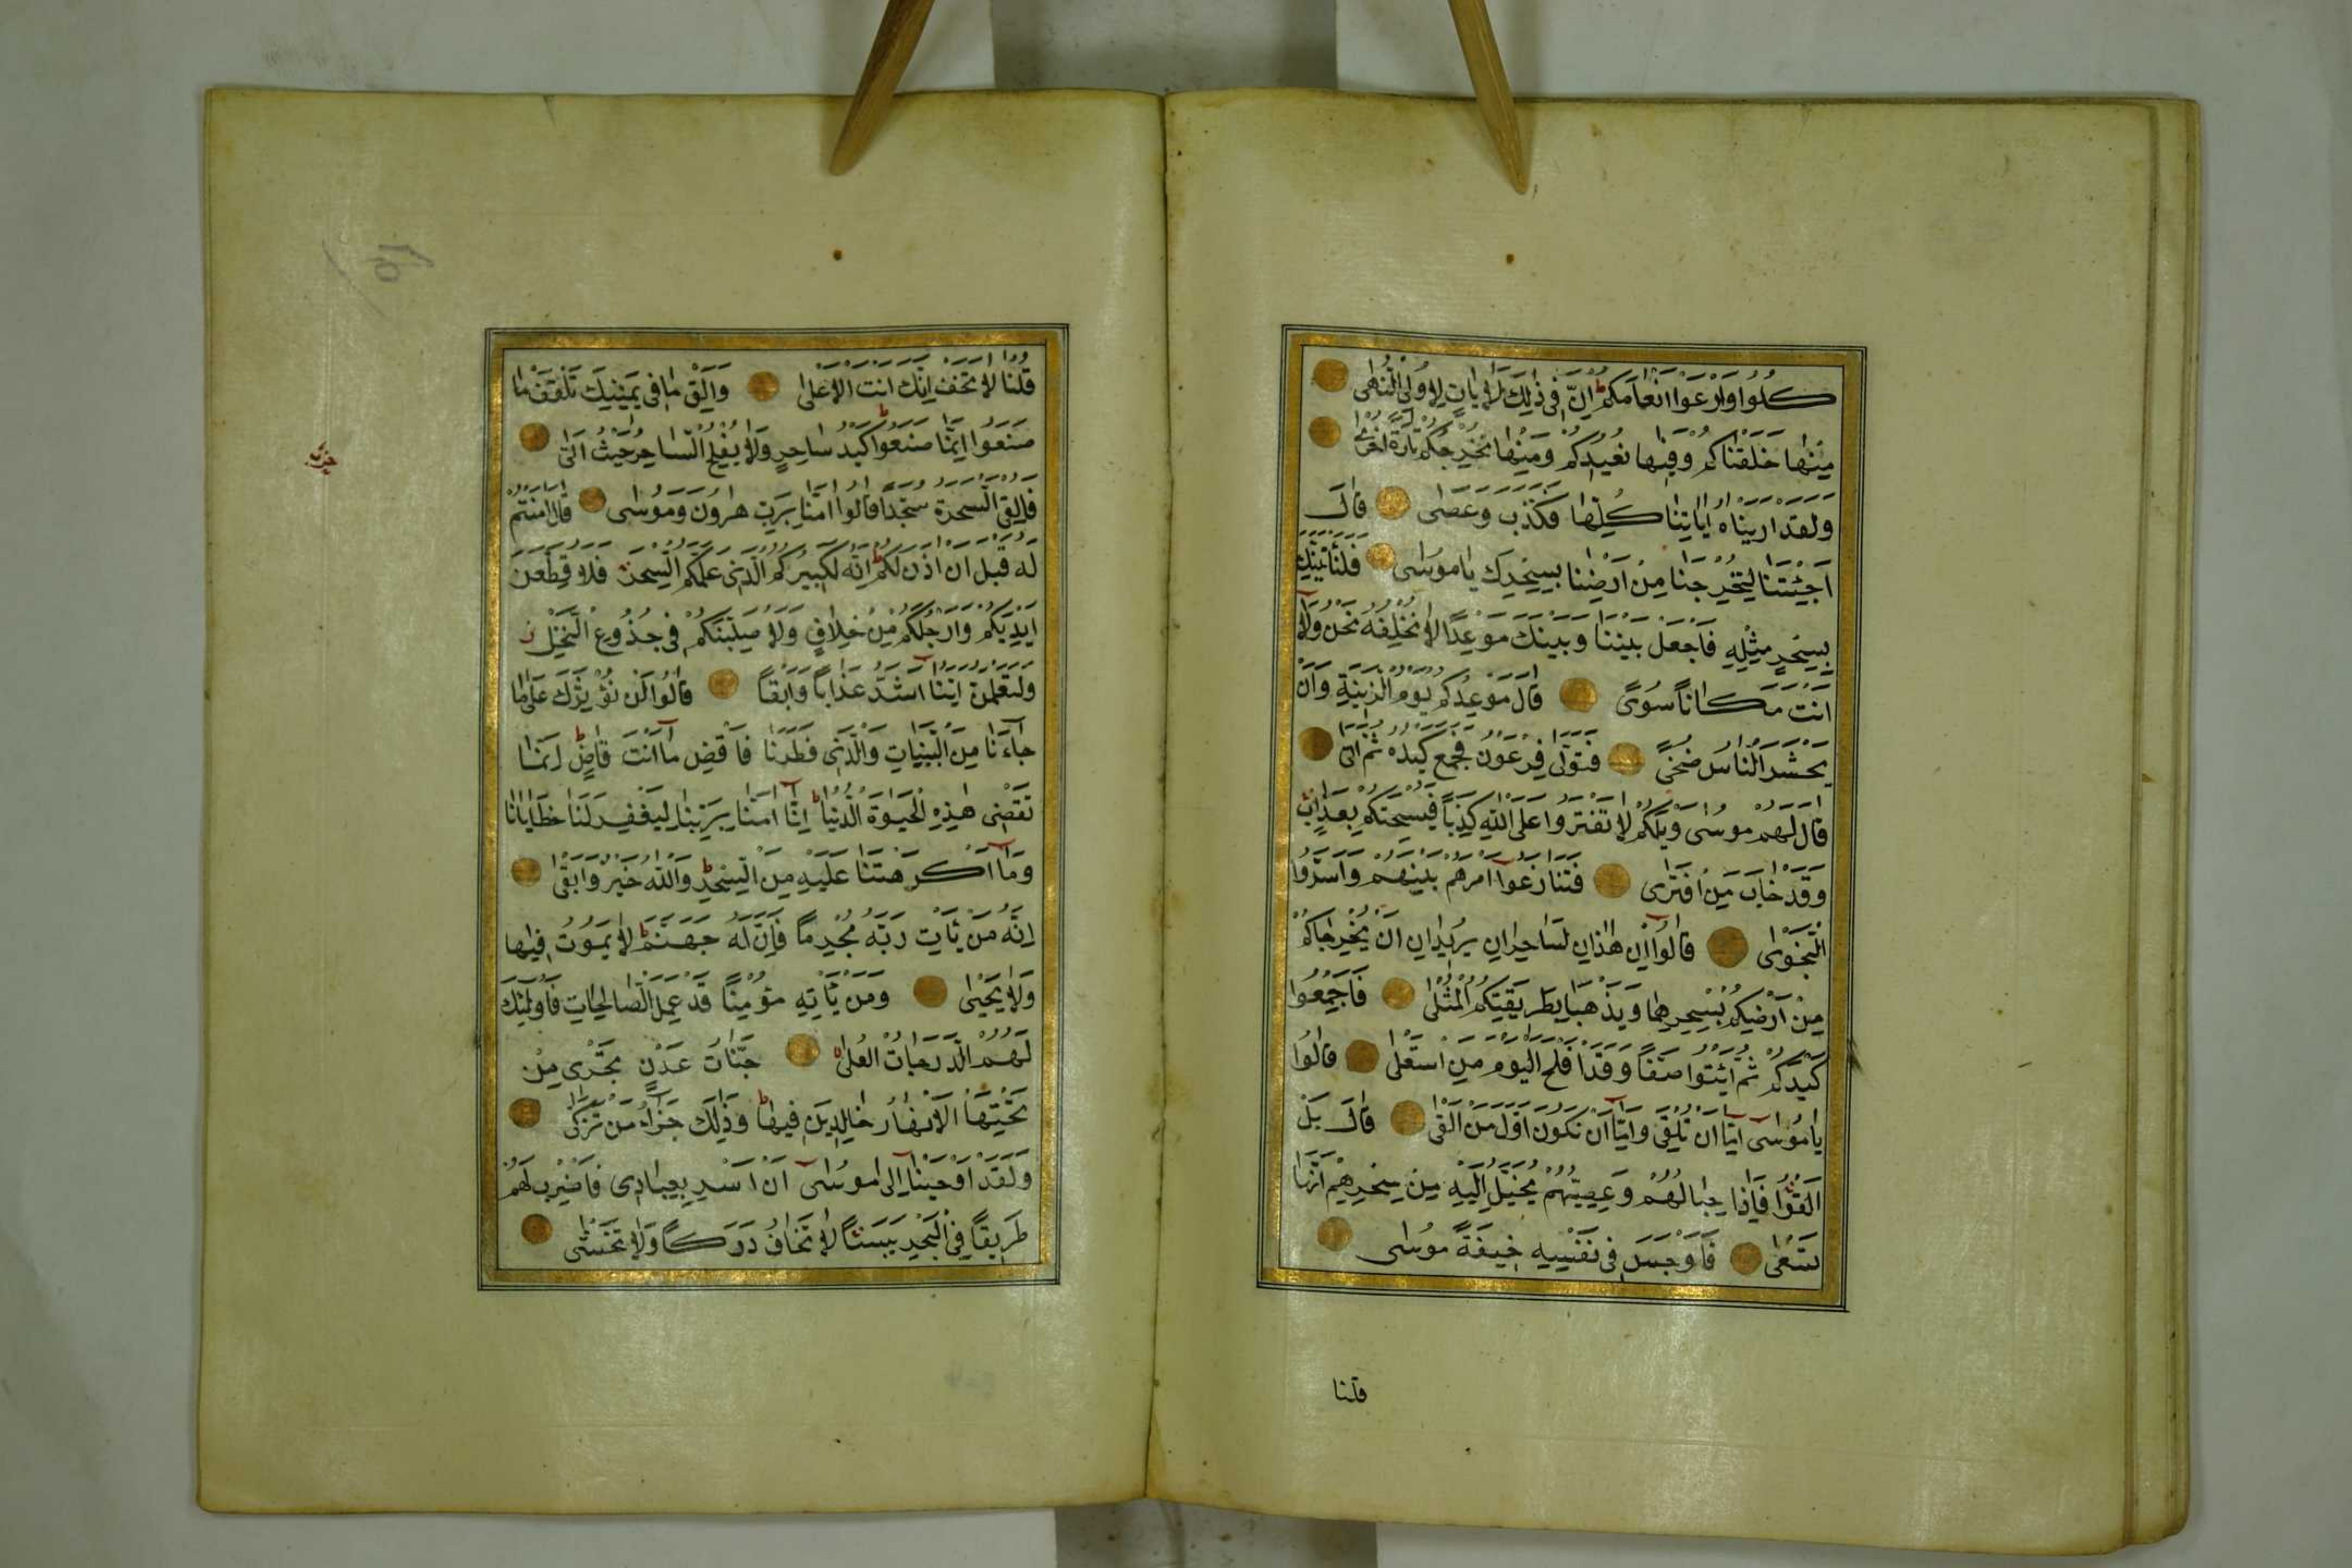 كُلُوا وَارْعَوْا اَنْعَامَكُمْ ط اِنَّ فِى ذٰلِكَ لَاٰيَاتٍ لِاُولِى النُّهٰى
مِنْهَا خَلَقْنَاكُمْ وَفِيهَا نُعِيدُكُمْ وَمِنْهَا نُخْرِجُكُمْ تَارَةً اُخْرٰى
وَلَقَدْ اَرَيْنَاهُ اٰيَاتِنَا كُلَّهَا فَكَذَّبَ وَعَصٰى قَالَ
اَجِئْتَنَا لِتُخْرِجَنَا مِنْ اَرْضِنَا بِسِحْرِكَ يَا مُوسٰى فَلَنَأْتِيَنَّكَ
بِسِحْرٍ مِثْلِهِ فَاجْعَلْ بَيْنَنَا وَبَيْنَكَ مَوْعِدًا لَا نُخْلِفُهُ نَحْنُ وَلَا
اَنْتَ مَكَانًا سُوًى قَالَ مَوْعِدُكُمْ يَوْمُ الزِّينَةِ وَاَنْ
يُحْشَرَ النَّاسُ ضُحًى فَتَوَلّٰى فِرْعَوْنُ فَجَمَعَ كَيْدَهُ ثُمَّ اَتٰى
قَالَ لَهُمْ مُوسٰى وَيْلَكُمْ لَا تَفْتَرُوا عَلَى اللّٰهِ كَذِبًا فَيُسْحِتَكُمْ بِعَذَابٍ
وَقَدْ خَابَ مَنِ افْتَرٰى فَتَنَازَعُوا اَمْرَهُمْ بَيْنَهُمْ وَاَسَرُّوا
النَّجْوٰى قَالُوا اِنْ هٰذَانِ لَسَاحِرَانِ يُرِيدَانِ اَنْ يُخْرِجَاكُمْ
مِنْ اَرْضِكُمْ بِسِحْرِهِمَا وَيَذْهَبَا بِطَرِيقَتِكُمُ الْمُثْلٰى فَاَجْمِعُوا
كَيْدَكُمْ ثُمَّ ائْتُوا صَفًّا وَقَدْ اَفْلَحَ الْيَوْمَ مَنِ اسْتَعْلٰى قَالُوا
يَا مُوسٰى اِمَّا اَنْ تُلْقِىَ وَاِمَّا اَنْ نَكُونَ اَوَّلَ مَنْ اَلْقٰى قَالَ بَلْ
اَلْقُوا فَاِذَا حِبَالُهُمْ وَعِصِيُّهُمْ يُخَيَّلُ اِلَيْهِ مِنْ سِحْرِهِمْ اَنَّهَا
تَسْعٰى فَاَوْجَسَ فِى نَفْسِهِ خِيفَةً مُوسٰى
قلنا
قُلْنَا لَا تَخَفْ اِنَّكَ اَنْتَ الْاَعْلٰى وَاَلْقِ مَا فِى يَمِينِكَ تَلْقَفْ مَا
صَنَعُوا اِنَّمَا صَنَعُوا كَيْدُ سَاحِرٍ ط وَلَا يُفْلِحُ السَّاحِرُ حَيْثُ اَتٰى
فَاُلْقِىَ السَّحَرَةُ سُجَّدًا قَالُوا اٰمَنَّا بِرَبِّ هٰرُونَ وَمُوسٰى قَالَ اٰمَنْتُمْ
لَهُ قَبْلَ اَنْ اٰذَنَ لَكُمْ ط اِنَّهُ لَكَبِيرُكُمُ الَّذِى عَلَّمَكُمُ السِّحْرَ فَلَاُقَطِّعَنَّ
اَيْدِيَكُمْ وَاَرْجُلَكُمْ مِنْ خِلَافٍ وَلَاُصَلِّبَنَّكُمْ فِى جُذُوعِ النَّخْلِ ز
وَلَتَعْلَمُنَّ اَيُّنَا اَشَدُّ عَذَابًا وَاَبْقٰى قَالُوا لَنْ نُؤْثِرَكَ عَلٰى مَا
جَاءَنَا مِنَ الْبَيِّنَاتِ وَالَّذِى فَطَرَنَا فَاقْضِ مَا اَنْتَ قَاضٍ ط اِنَّمَا
تَقْضِى هٰذِهِ الْحَيٰوةَ الدُّنْيَا ط اِنَّا اٰمَنَّا بِرَبِّنَا لِيَغْفِرَ لَنَا خَطَايَانَا
وَمَا اَكْرَهْتَنَا عَلَيْهِ مِنَ السِّحْرِ ط وَاللّٰهُ خَيْرٌ وَاَبْقٰى
اِنَّهُ مَنْ يَأْتِ رَبَّهُ مُجْرِمًا فَاِنَّ لَهُ جَهَنَّمَ ط لَا يَمُوتُ فِيهَا
وَلَا يَحْيٰى وَمَنْ يَأْتِهِ مُؤْمِنًا قَدْ عَمِلَ الصَّالِحَاتِ فَاُولٰئِكَ
لَهُمُ الدَّرَجَاتُ الْعُلٰى جَنَّاتُ عَدْنٍ تَجْرِى مِنْ
تَحْتِهَا الْاَنْهَارُ خَالِدِينَ فِيهَا ط وَذٰلِكَ جَزَاءُ مَنْ تَزَكّٰى
وَلَقَدْ اَوْحَيْنَا اِلٰى مُوسٰى اَنْ اَسْرِ بِعِبَادِى فَاضْرِبْ لَهُمْ
طَرِيقًا فِى الْبَحْرِ يَبَسًا لَا تَخَافُ دَرَكًا وَلَا تَخْشٰى
حزب